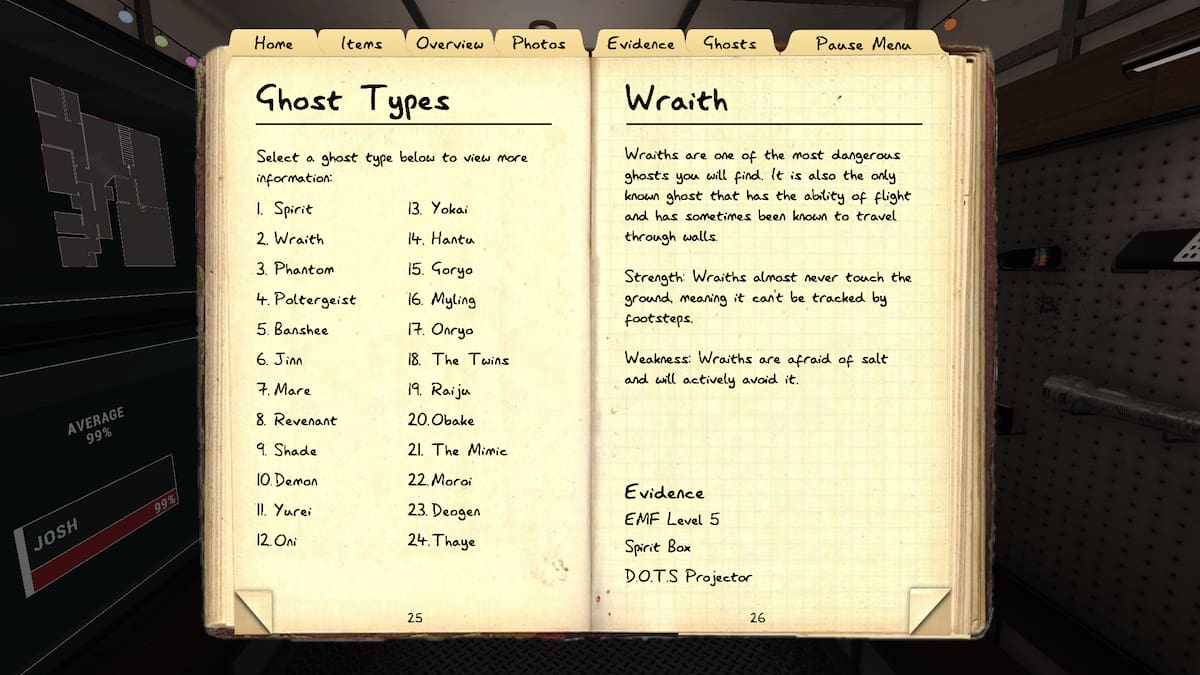 Home
Items
Overview
Photos
Evidence
Ghosts
Pause Menu
Ghost Types
Select a ghost type below to view more
information:
1. Spirit
2. Wraith
3. Phantom
4. Poltergeist
5. Banshee
6. Jinn
7. Mare
8. Revenant
9. Shade
10. Demon
11. Yurei
12. Oni
13. Yokai
14. Hantu
15. Goryo
16. Myling
17. Onryo
18. The Twins
19. Raiju
20. Obake
21. The Mimic
22. Moroi
23. Deogen
24. Thaye
25
Wraith
Wraiths are one of the most dangerous
ghosts you will find. It is also the only
known ghost that has the ability of flight
and has sometimes been known to travel
through walls.
Strength: Wraiths almost never touch the
ground, meaning it can't be tracked by
footsteps.
Weakness: Wraiths are afraid of salt
and will actively avoid it.
Evidence
EMF Level 5
Spirit Box
D.O.T.S Projector
26
AVERAGE
99%
JOSH
99%